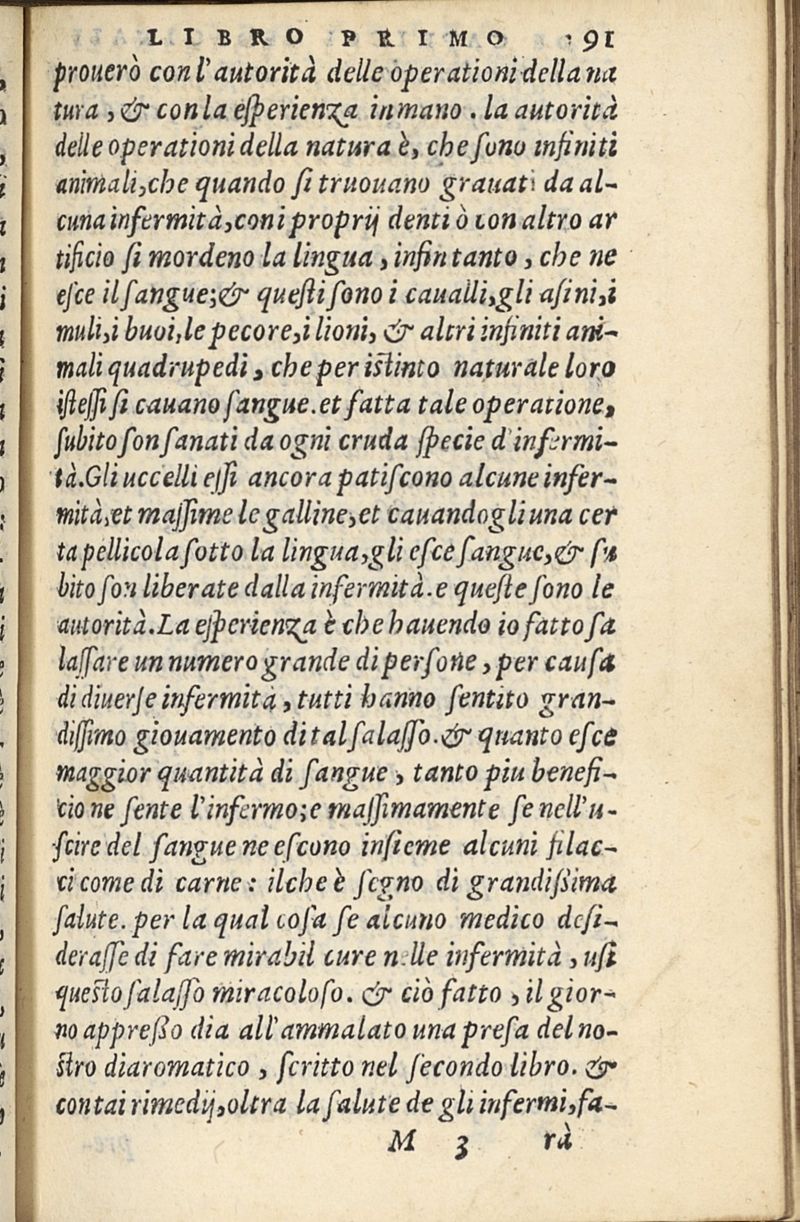 LIBRO PRIMO 91
prouerò con l'autorità delle operationi della na
tura, & con la esperienza in mano. la autorità
delle operationi della natura è, che sono infiniti
animali, che quando si truouano grauati da al-
cuna infermità, con i proprij denti ò con altro ar
tificio si mordeno la lingua, infin tanto, che ne
esce il sangue; & questi sono i caualli, gli asini, i
muli, i buoi, le pecore, i lioni, & altri infiniti ani-
mali quadrupedi, che per istinto naturale loro
istessi si cauano sangue. et fatta tale operatione,
subito son sanati da ogni cruda specie d'infermi-
tà. Gli uccelli essi ancora patiscono alcune infer-
mità, et massime le galline, et cauandogli una cer
ta pellicola sotto la lingua, gli esce sangue, & su
bito son liberate dalla infermità. e queste sono le
autorità. La esperienza è che hauendo io fatto sa
lassare un numero grande di persone, per causa
di diuerse infermità, tutti hanno sentito gran-
dissimo giouamento di tal salasso. & quanto esce
maggior quantità di sangue, tanto piu benefi-
cio ne sente l'infermo; e massimamente se nell'u-
scire del sangue ne escono insieme alcuni filac-
ci come di carne: ilche è segno di grandißima
salute. per la qual cosa se alcuno medico desi-
derasse di fare mirabil cure nelle infermità, usi
questo salasso miracoloso. & ciò fatto, il gior-
no appreßo dia all'ammalato una presa del no-
stro diaromatico, scritto nel secondo libro. &
con tai rimedij, oltra la salute de gli infermi, fa-
M 3 rà